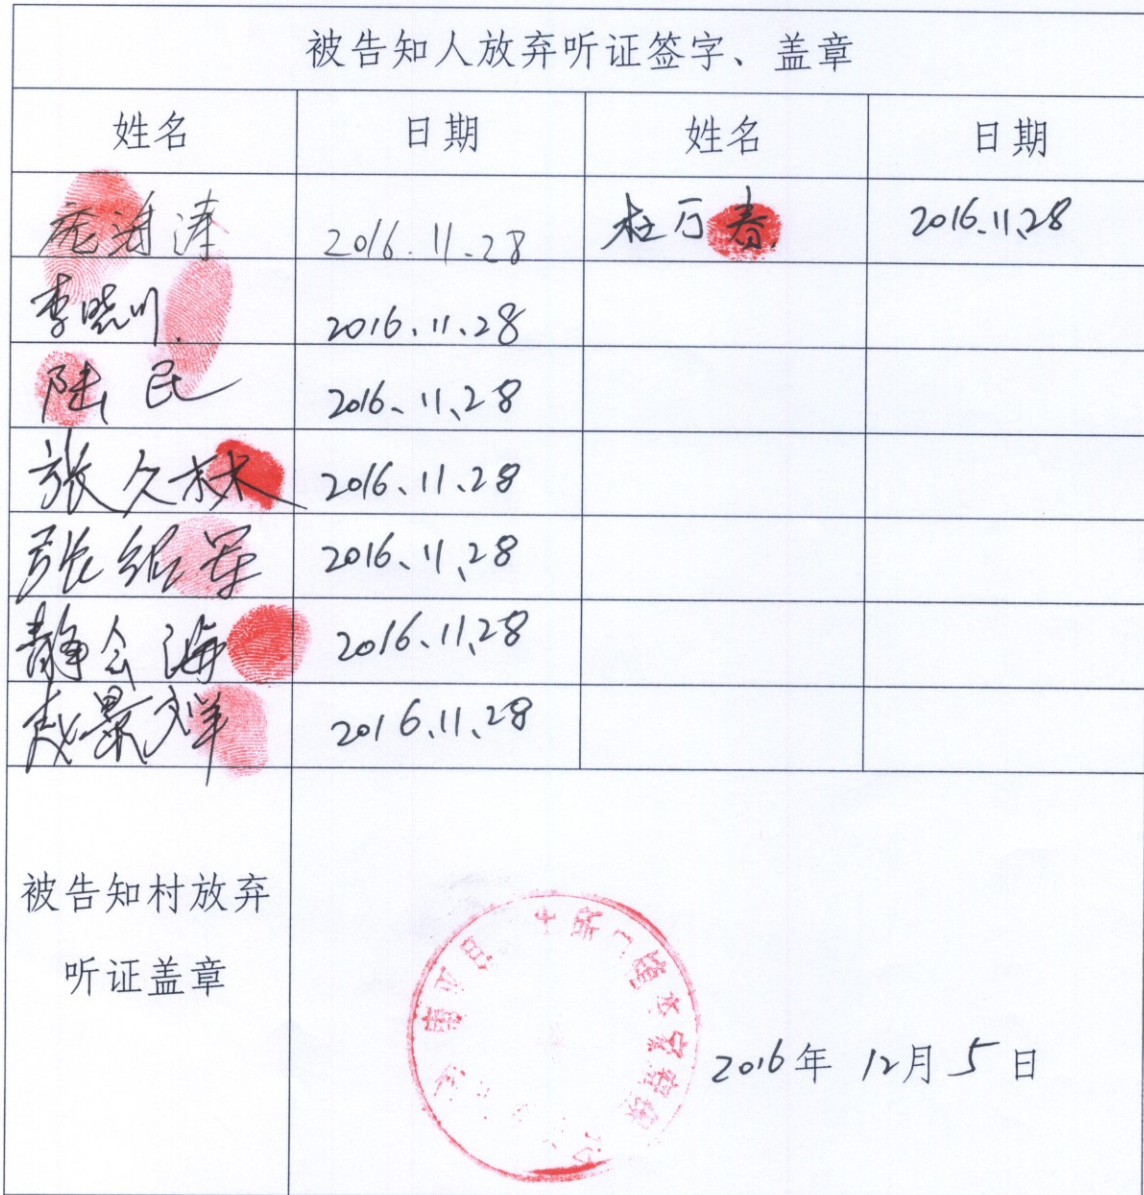 被告知人放弃听证签字、盖章
姓名 日期 姓名 日期
庞海涛 2016.11.28 杜万春 2016.11.28
李晓川 2016.11.28
陆民 2016.11.28
张久林 2016.11.28
张绍军 2016.11.28
静会海 2016.11.28
赵景祥 2016.11.28
被告知村放弃
听证盖章
2016年 12月 5日